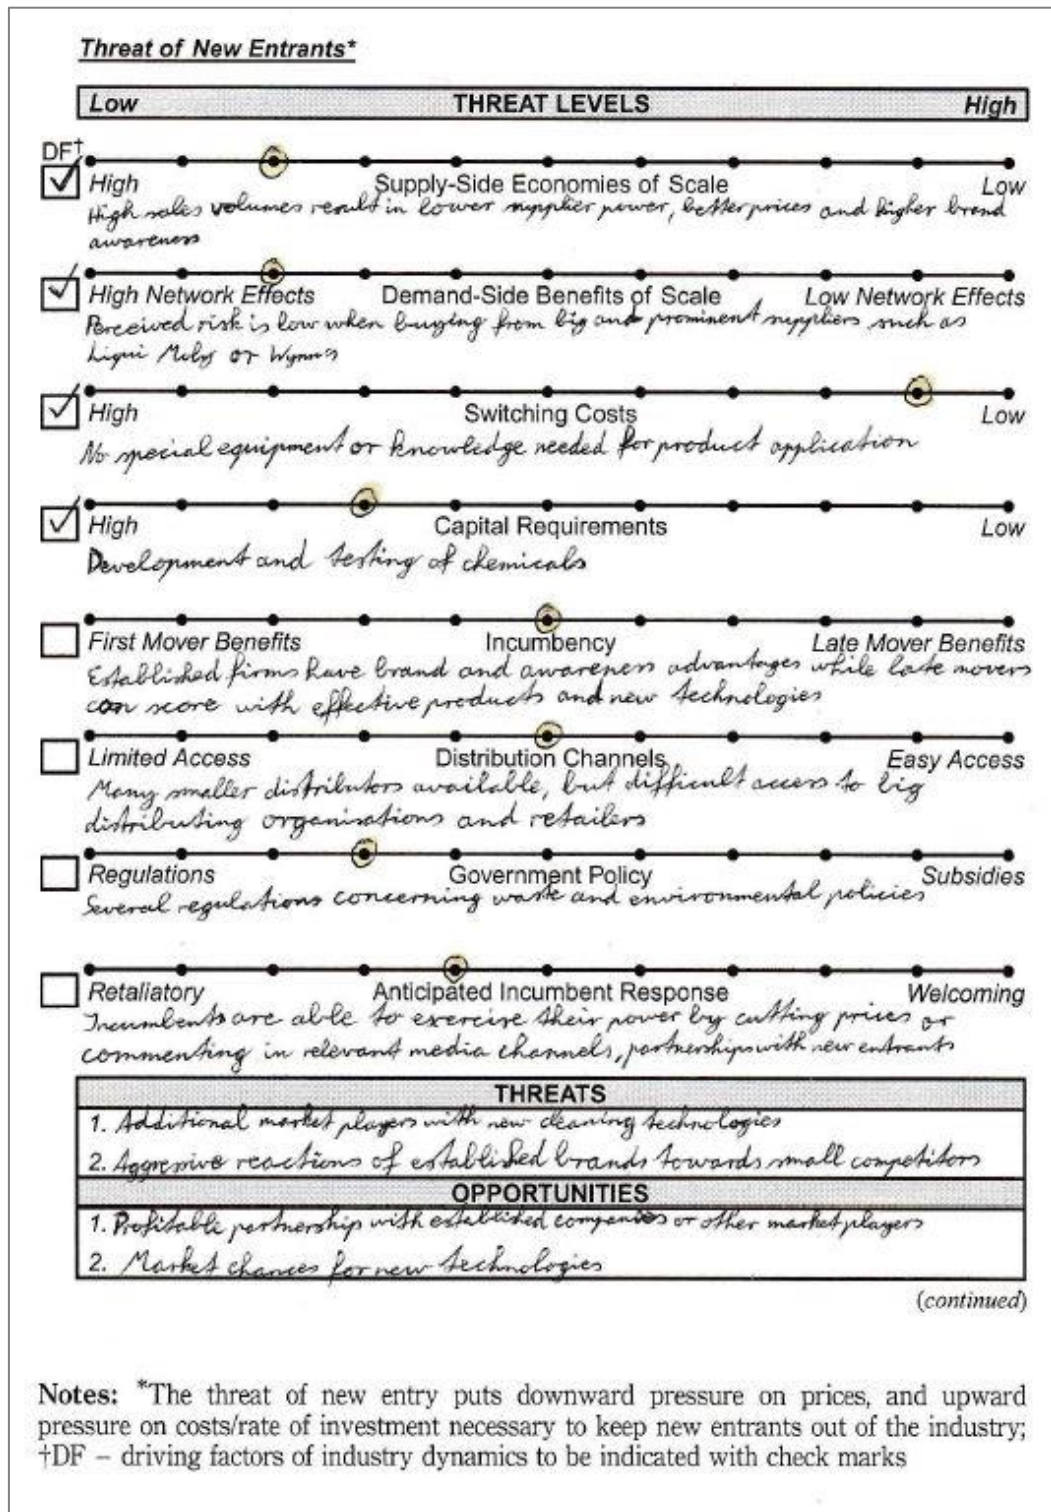 Threat of New Entrants*
Low THREAT LEVELS High
DF†
High Supply-Side Economies of Scale Low
High sales volumes result in lower supplier power, better prices and higher brand
awareness
High Network Effects Demand-Side Benefits of Scale Low Network Effects
Perceived risk is low when buying from big and prominent suppliers such as
Liqui Moly or Wynns
High Switching Costs Low
No special equipment or knowledge needed for product application
High Capital Requirements Low
Development and testing of chemicals
First Mover Benefits Incumbency Late Mover Benefits
Established firms have brand and awareness advantages while late movers
can score with effective products and new technologies
Limited Access Distribution Channels Easy Access
Many smaller distributors available, but difficult access to big
distributing organisations and retailers
Regulations Government Policy Subsidies
Several regulations concerning waste and environmental policies
Retaliatory Anticipated Incumbent Response Welcoming
Incumbents are able to exercise their power by cutting prices or
commenting in relevant media channels, partnerships with new entrants
THREATS
1. Additional market players with new cleaning technologies
2. Aggressive reactions of established brands towards small competitors
OPPORTUNITIES
1. Profitable partnership with established companies or other market players
2. Market chances for new technologies
(continued)
Notes: *The threat of new entry puts downward pressure on prices, and upward
pressure on costs/rate of investment necessary to keep new entrants out of the industry;
†DF – driving factors of industry dynamics to be indicated with check marks